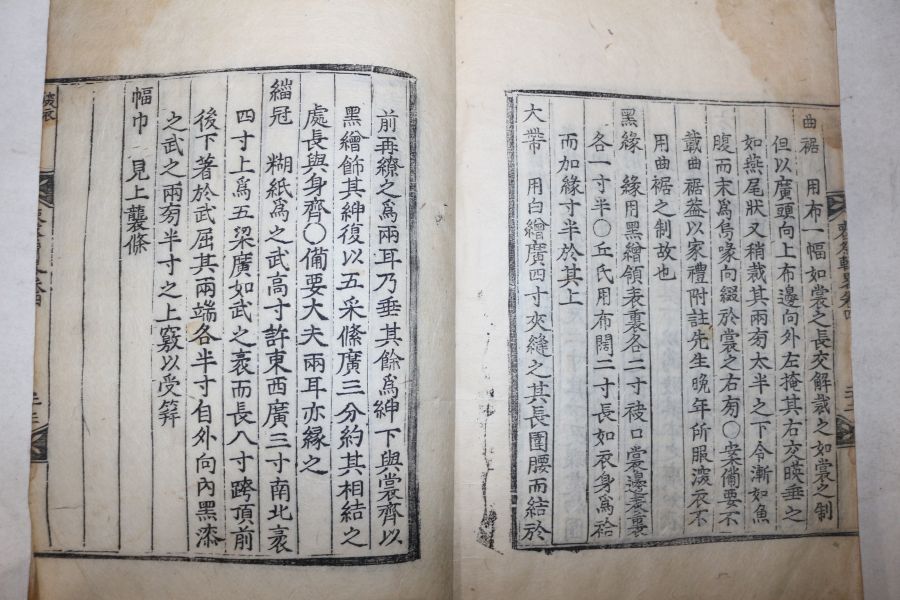 曲裾 用布一幅如裳之長交解裁之如裳之制
但以廣頭向上布邊向外左掩其右交暎垂之
如燕尾狀又稍裁其兩旁太半之下令漸如魚
腹而末爲鳥喙向綴於裳之右旁○案備要不
載曲裾葢以家禮附註先生晩年所服深衣不
用曲裾之制故也
黑緣 緣用黑繒領表裏各二寸袂口裳邊表裏
各一寸半○丘氏用布闊二寸長如衣身爲袷
而加緣寸半於其上
大帶 用白繒廣四寸夾縫之其長圍腰而結於
前再繚之爲兩耳乃垂其餘爲紳下與裳齊以
黑繒飾其紳復以五采絛廣三分約其相結之
處長與身齊○備要大夫兩耳亦緣之
緇冠 糊紙爲之武高寸許東西廣三寸南北袤
四寸上爲五梁廣如武之袤而長八寸跨頂前
後下著於武屈其兩端各半寸自外向內黑漆
之武之兩旁半寸之上竅以受笄
幅巾 見上襲條